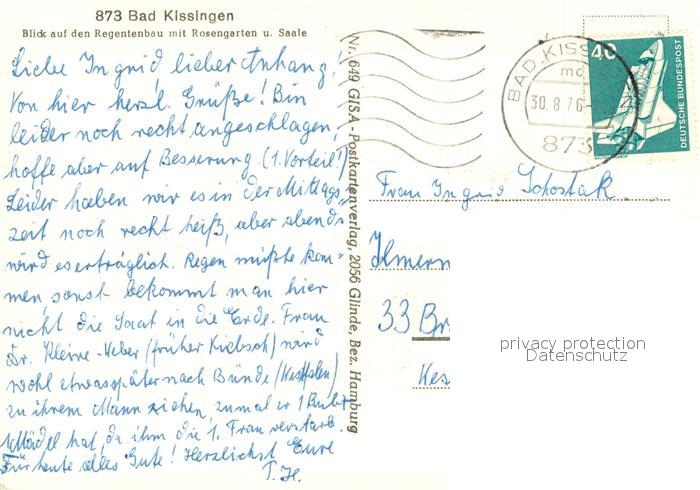 873 Bad Kissingen
Blick auf den Regentenbau mit Rosengarten u. Saale
Liebe Ingrid, lieber Anhang,
Von hier herzl. Grüße! Bin
leider noch recht angeschlagen,
hoffe aber auf Besserung (1. Vorteil!)
Leider haben wir es in der Mittags-
zeit noch recht heiß, aber abends
wird es erträglich. Regen müßte kom-
men, sonst bekommt man hier
nicht die Saat in die Erde. Frau
Dr. Kleine-Weber (früher Kiebsch) wird
wohl etwas später nach Bünde (Westfalen)
zu ihrem Mann ziehen, zumal er 1 Bub +
Mädel hat, da ihm die 1. Frau verstarb.
Für heute alles Gute! Herzlichst Eure
T. H.
Nr. 649 GISA-Postkartenverlag, 2056 Glinde, Bez. Hamburg
BAD KISS
mo
30.8.76
873
40
DEUTSCHE BUNDESPOST
Frau Ingrid Schostak
Ilmern
33 Br
Kes
privacy protection
Datenschutz